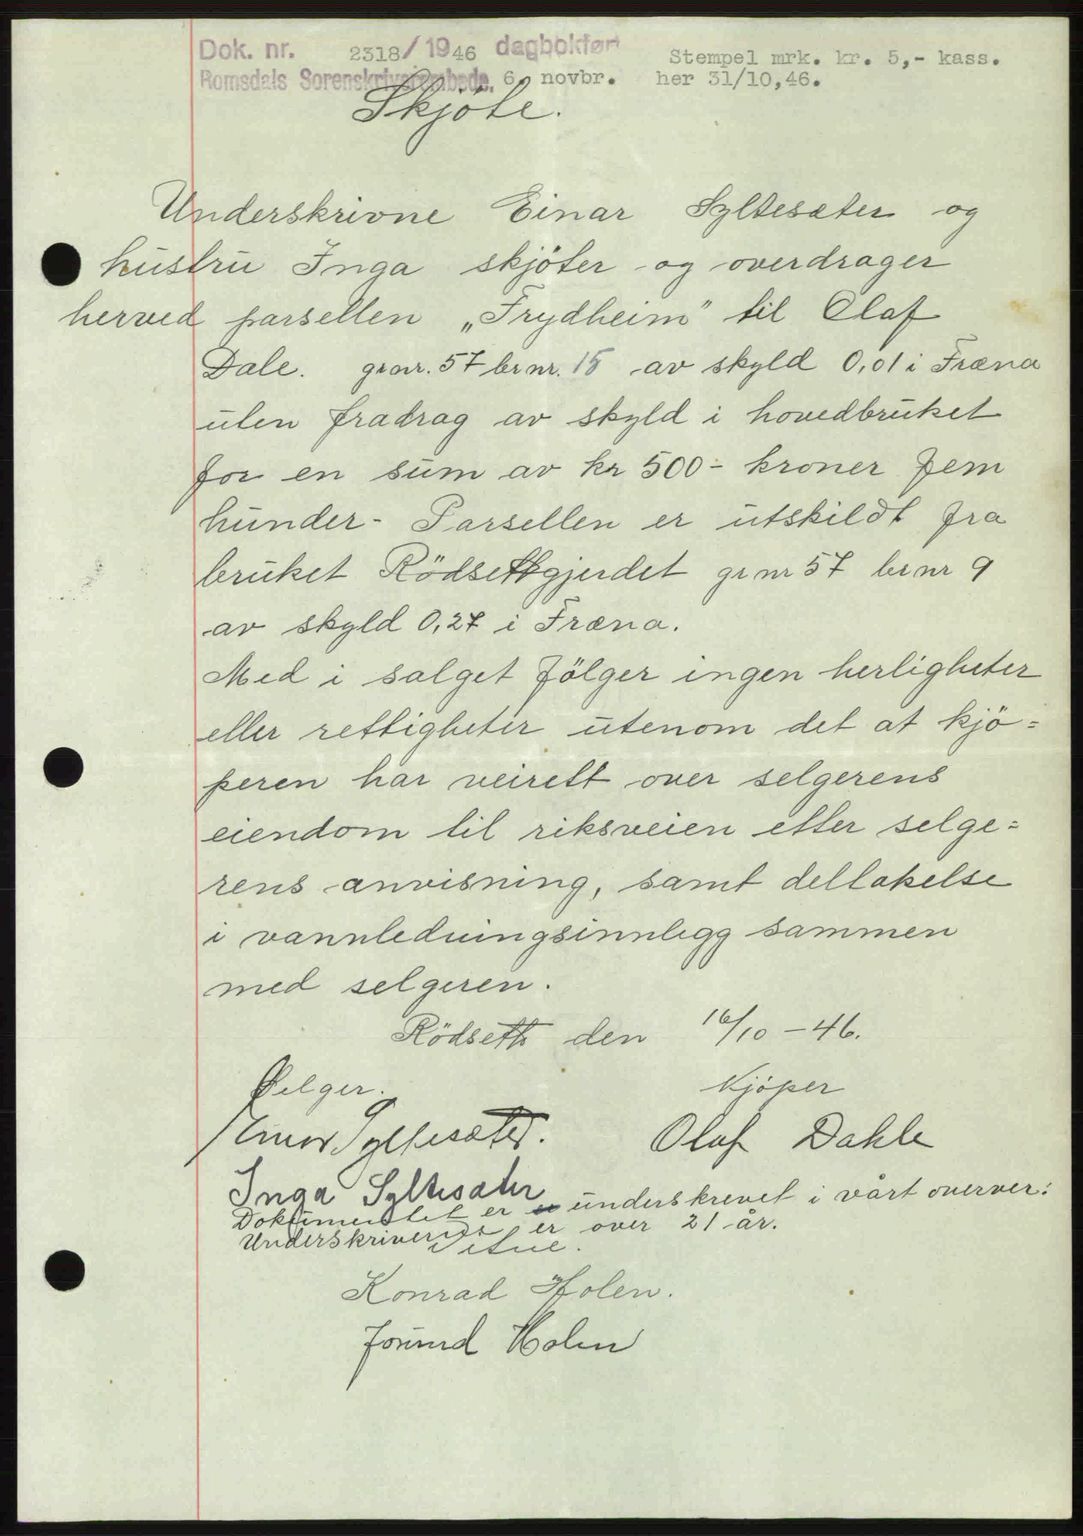 Dok. nr. 2318/1946 dagbokført Stempel mrk. kr. 5,- kass.
Romsdals Sorenskriverembede. 6. novbr. her 31/10,46.
Skjöte.
Underskrivne Einar Syltesæter og
hustru Inga skjöter og overdrager
herved parsellen „Frydheim" til Olaf
Dale. grnr. 57 brnr. 15 av skyld 0,01 i Fræna
uten fradrag av skyld i hovedbruket
for en sum av kr 500- kroner fem
hunder- Parsellen er utskildt fra
bruket Rödsettgjerdet grnr 57 brnr 9
av skyld 0,27 i Fræna.
Med i salget fölger ingen herligheter
eller rettigheter utenom det at kjö=
peren har veirett over selgerens
eiendom til riksveien etter selge=
rens anvisning, samt deltakelse
i vannledningsinnlegg sammen
med selgeren.
Rödseth den 16/10 - 46.
Selger. Kjöper
Einar Syltesæter. Olaf Dahle
Inga Syltesæter
Dokumentet er underskrevet i vårt overver:
Underskriverne er over 21 år.
Vitne.
Konrad Holen.
Jorund Holen